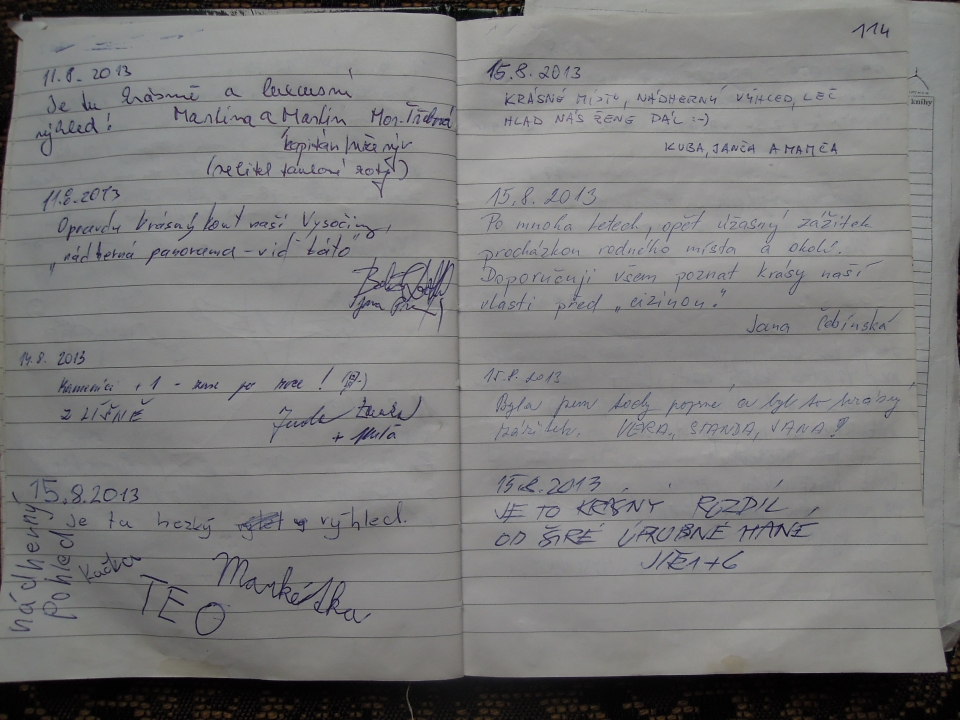 11.8. 2013
Je tu krásně a luxusní
výhled! Martina a Martin Mor. Třebová
kapitán
(velitel tankové roty)
11.8.2013
Opravdu krásný kout naší Vysočiny,
„nádherná panorama - viď táto“
14.8. 2013
+ 1 -
Z LÍŠNĚ
15.8.2013
Je tu hezký výhled.
nádherný
Pohled
Kačka
TEO
Markétka
114
15.8.2013
KRÁSNÉ MÍSTO, NÁDHERNÝ VÝHLED, LEČ
HLAD NÁS ŽENE DÁL :-)
KUBA, JANČA A MAMČA
15.8.2013
Po mnoha letech, opět úžasný zážitek
procházkou rodného místa a okolí.
Doporučuji všem poznat krásy naší
vlasti před „cizinou.“
Jana
15.8.2013
Byla jsem tady poprvé a byl to krásný
zážitek. VĚRA, STANDA, JANA!
15.8.2013
JE TO KRÁSNÝ ROZDÍL
OD ŠIRÉ ÚRODNÉ HANÉ
knihy